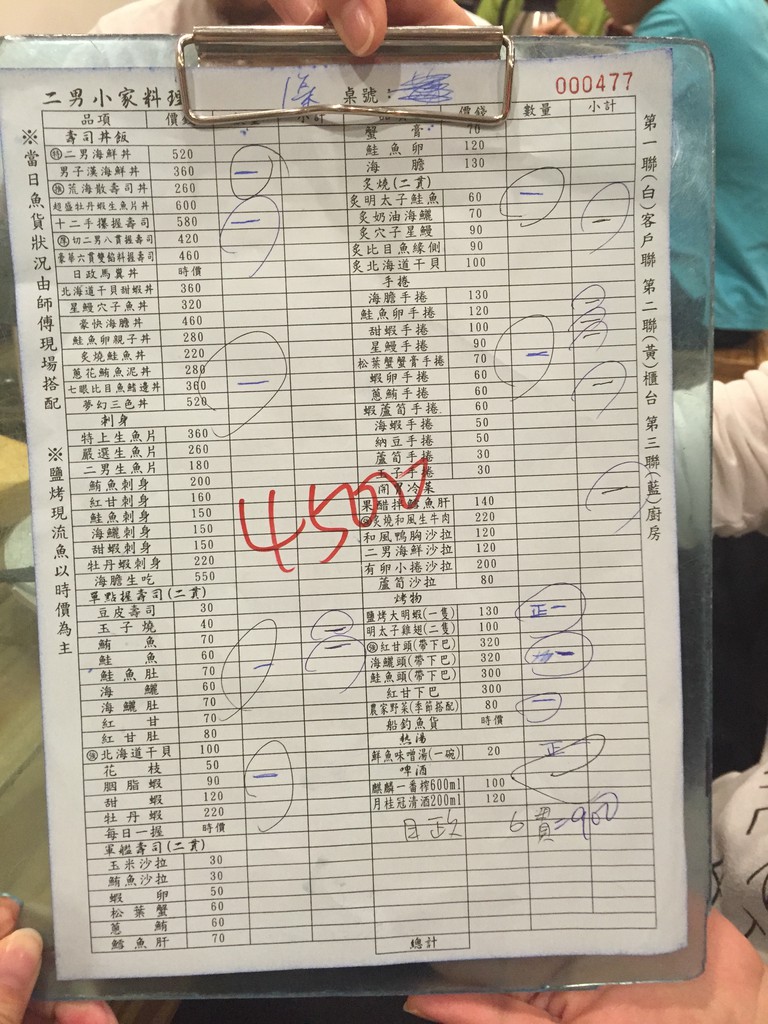 000477
二男小家料理 桌號：
品項 價錢 小計 價錢 數量 小計
壽司丼飯
二男海鮮丼 520
男子漢海鮮丼 360
荒海散壽司丼 260
超盛牡丹蝦生魚片丼 600
十二手攥握壽司 580 一
切二男八貫握壽司 420
豪華六貫雙餡料握壽司 460
日政馬糞丼 時價
北海道干貝甜蝦丼 360
星鰻穴子魚丼 320
豪快海膽丼 460
鮭魚卵親子丼 280
炙燒鮭魚丼 220
蔥花鮪魚泥丼 280
七眼比目魚鰭邊丼 360 一
夢幻三色丼 520
刺身
特上生魚片 360
嚴選生魚片 260
二男生魚片 180
鮪魚刺身 200
紅甘刺身 160
鮭魚刺身 150
海鱺刺身 150
甜蝦刺身 150
牡丹蝦刺身 220
海膽生吃 550
單點握壽司(二貫)
豆皮壽司 30
玉子燒 40
鮪魚 70
鮭魚 60
鮭魚肚 70
海鱺 60
海鱺肚 70
紅甘 70
紅甘肚 80
北海道干貝 100
花枝 50
胭脂蝦 90
甜蝦 120
牡丹蝦 220
每日一握 時價
軍艦壽司(二貫)
玉米沙拉 30
鮪魚沙拉 30
蝦卵 50
松葉蟹 60
蔥鮪 60
鱈魚肝 70
蟹膏 70
鮭魚卵 120
海膽 130
炙燒(二貫)
炙明太子鮭魚 60 一
炙奶油海鱺 70
炙穴子星鰻 90
炙比目魚緣側 90
炙北海道干貝 100
手捲
海膽手捲 130
鮭魚卵手捲 120
甜蝦手捲 100
星鰻手捲 90
松葉蟹蟹膏手捲 70 一
蝦卵手捲 60
蔥鮪手捲 60
蝦蘆筍手捲 60
海蝦手捲 50
納豆手捲 50
蘆筍手捲 30
玉子手捲 30
開胃冷菜
果醋拌鱈魚肝 140
炙燒和風生牛肉 220
和風鴨胸沙拉 120
二男海鮮沙拉 120
有卵小捲沙拉 200
蘆筍沙拉 80
烤物
鹽烤大明蝦(一隻) 130 正一
明太子雞翅(二隻) 100
紅甘頭(帶下巴) 320
海鱺頭(帶下巴) 320
鮭魚頭(帶下巴) 300
紅甘下巴 300
農家野菜(季節搭配) 80 一
船釣魚貨 時價
熱湯
鮮魚味噌湯(一碗) 20 正
啤酒
麒麟一番榨600ml 100
月桂冠清酒200ml 120
6貫=900
總計
4500
※當日魚貨狀況由師傅現場搭配
※鹽烤現流魚以時價為主
第一聯(白)客戶聯 第二聯(黃)櫃台 第三聯(藍)廚房